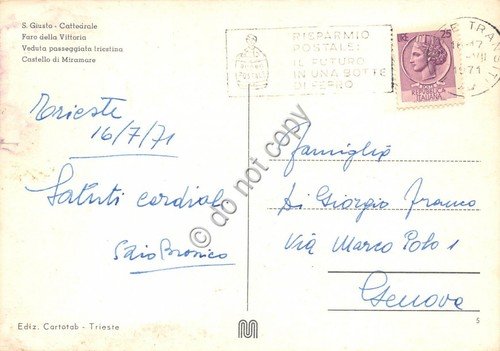 S. Giusto - Cattedrale
Faro della Vittoria
Veduta passeggiata triestina
Castello di Miramare
RISPARMIO
POSTALE:
IL FUTURO
IN UNA BOTTE
DI FERRO
25
REPUBBLICA
ITALIANA
16-17
1971
Trieste
16/7/71
Saluti cordiali
Famiglia
Di Giorgio Franco
Via Marco Polo 1
Genova
© do not copy
Ediz. Cartotab - Trieste
5